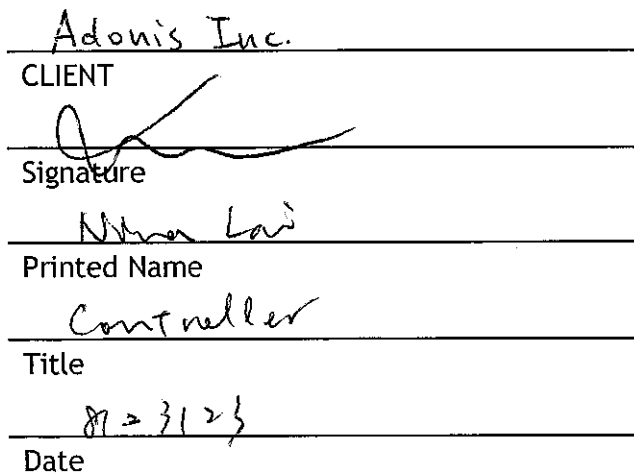 Adonis Inc.
CLIENT
Signature
Nina Lai
Printed Name
Controller
Title
8/23/23
Date